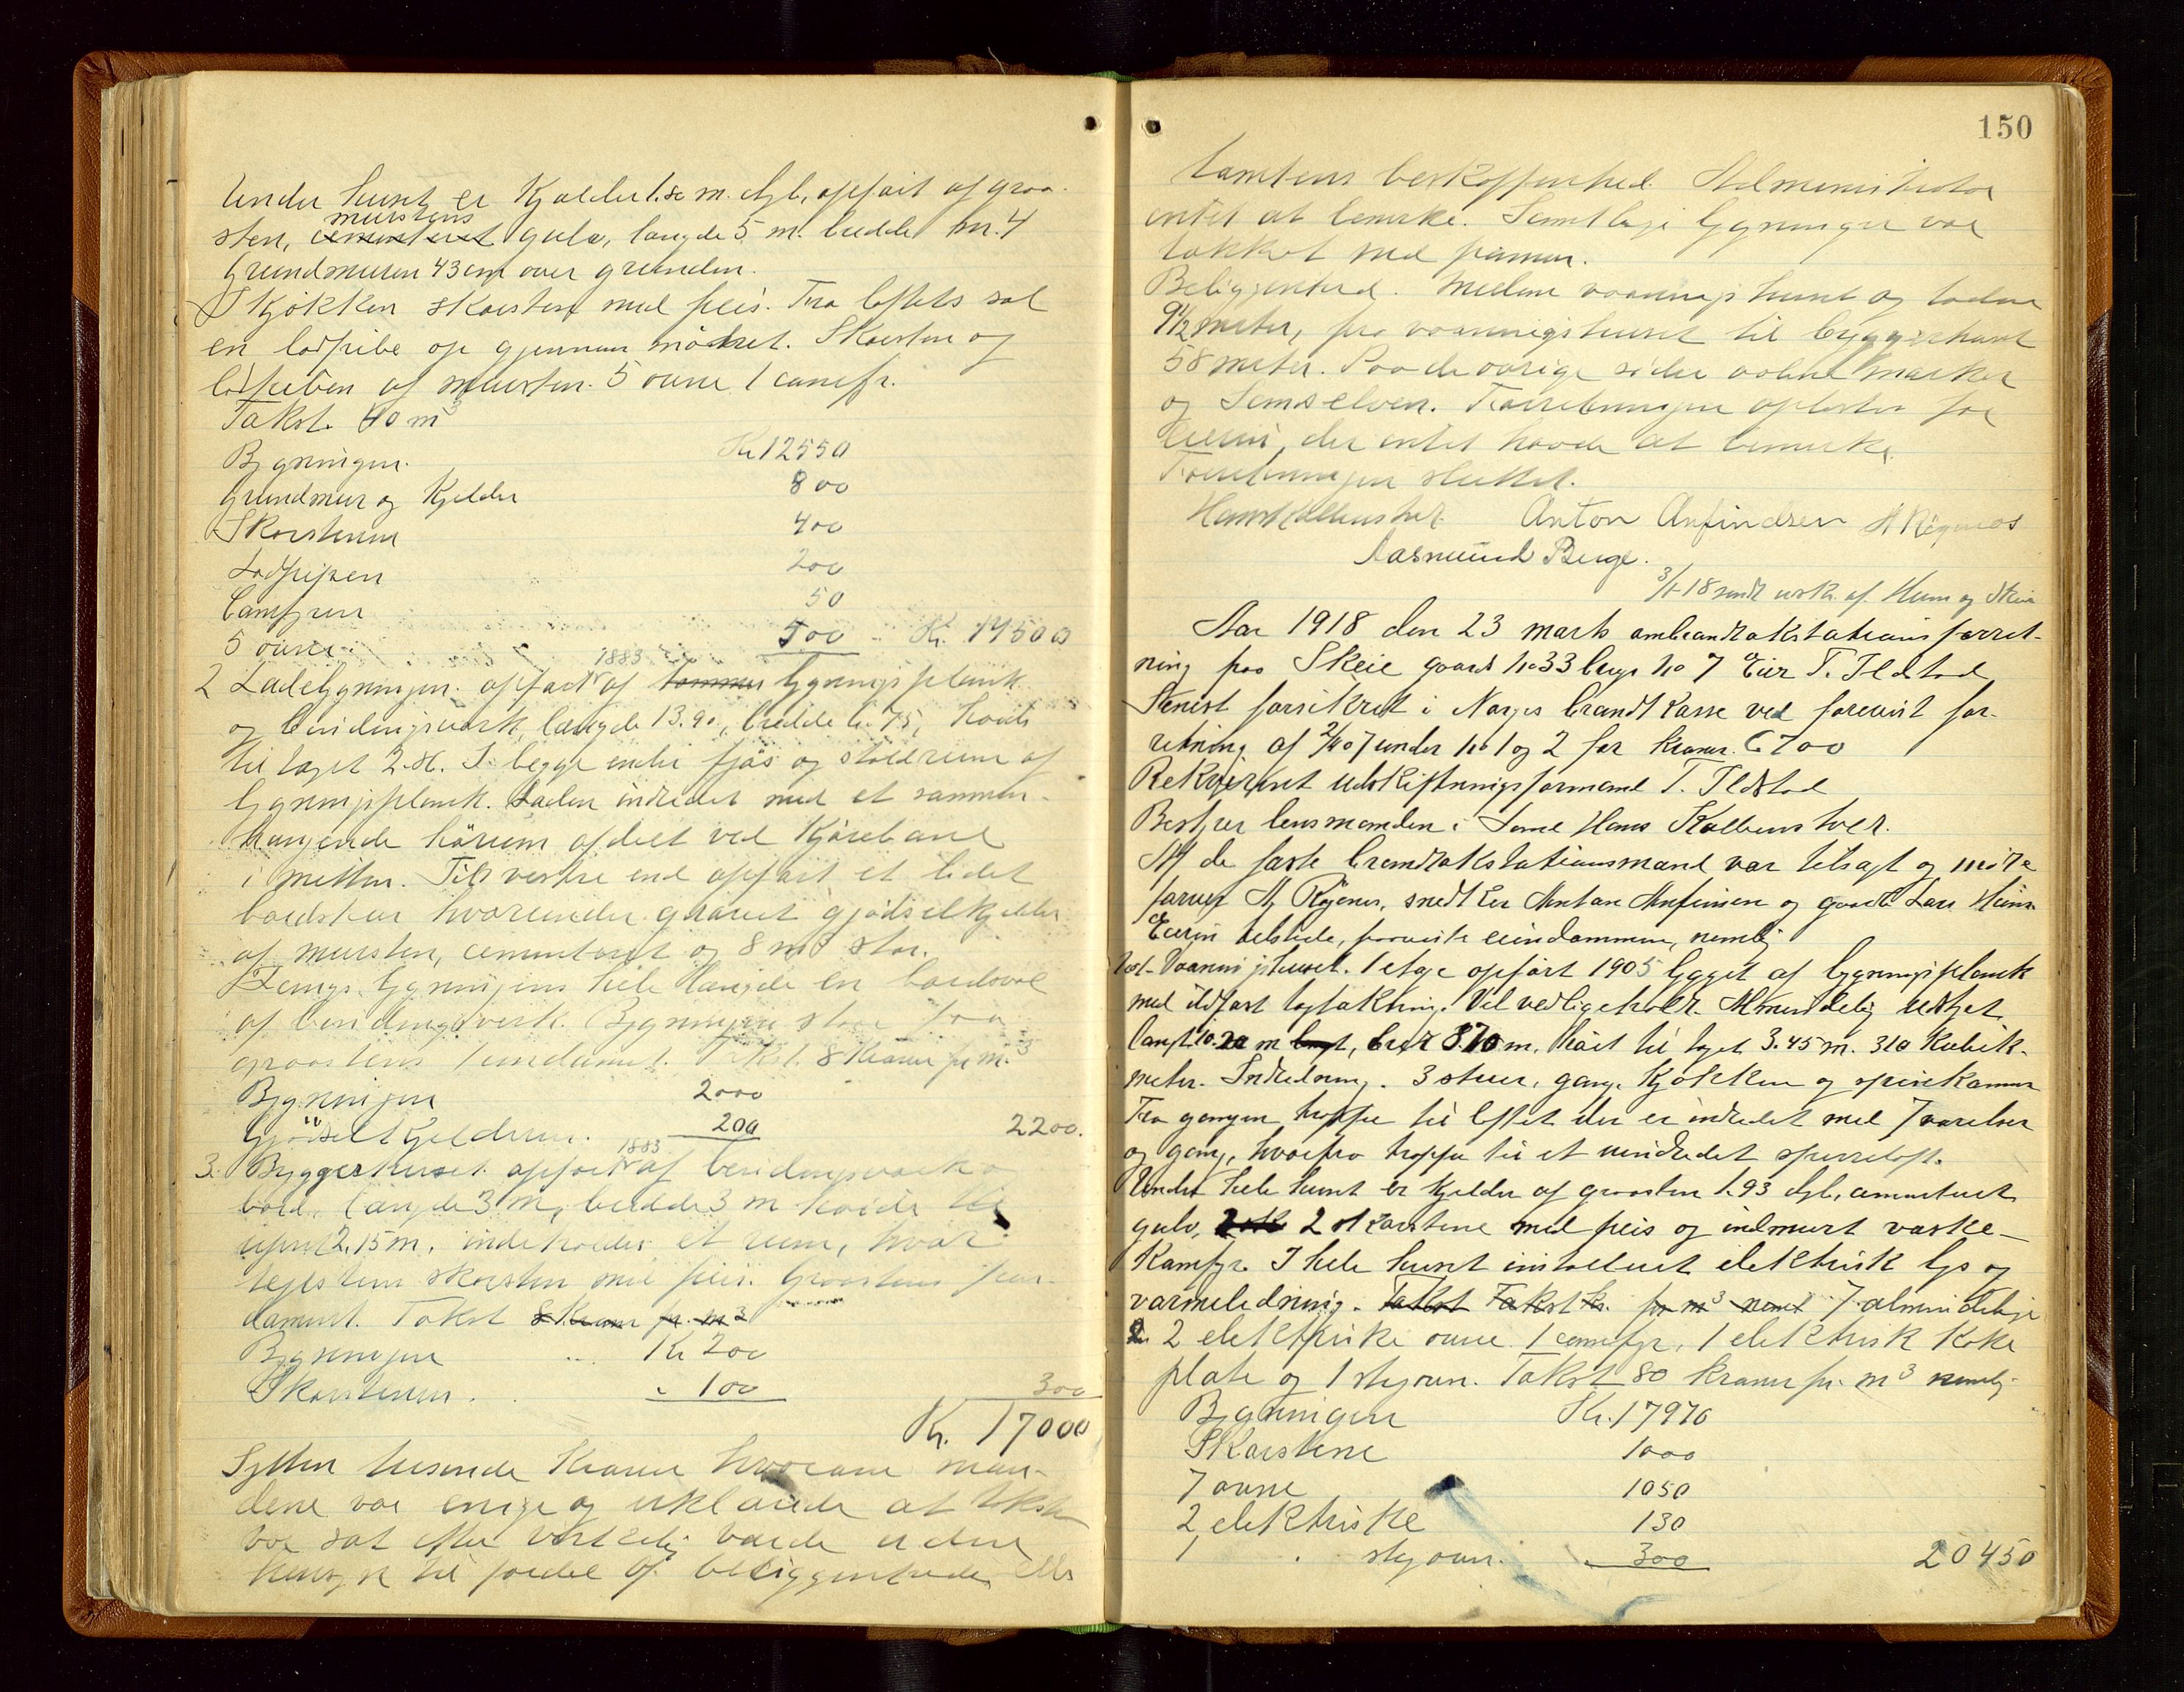 Under huset er Kjelder 1.80 m. dyb, opført af graa-
sten, murstens gulv, længde 5 m. bredde m. 4
Grundmuren 43 cm over grunden.
I Kjökken skorsten med peis. Fra loftets sal
en lodpibe op gjennem mönet. Skorsten og
lodpiben af mursten. 5 ovne 1 comfyr.
Takst. 40 m3
Bygningen. Kr 12550
Grundmur og Kjelder 800
Skorstenen 400
Lodpipen 200
Comfyren 50
5 ovne 500 Kr. 14500
2 Ladebygningen. opført 1883 af tømmer bygningsplank
og bindingsverk, længde 13.90, bredde 6.75, høide
til taget 2.80. I begge ender fjøs og staldrum af
bygningsplank. Laden indredet med et sammen-
hengende hörum afdelt ved Kjørebane
i mitten. Til vestre end opført et lidet
bordskur hvorunder gravet gjødselkjelder
af mursten, cementeret og 8 m3 stor.
Langs bygningens hele længde en bordsval
af bindingsverk. Bygningen staar paa
graastens fundament. Takst. 8 Kroner pr m.3
Bygningen 2000
Gjødselkjelderen. 200 2200.
3. Bryggerhuset opført 1883 af bindingsverk og
bord. længde 3 m, bredde 3 m høide til
2.15 m. indeholder et rum, hvor
teglstens skorsten med peis. Graastens fun-
dament. Takst 8 Kroner pr. m3
Bygningen Kr 200
Skorstenen. " 100 300
Kr. 17000
Sytten tusende Kroner hvorom mæn-
dene var enige og erklærede at taksten
var sat efter virkelig værdi uden
hensyn til fordel af beliggenheden eller
150
tomtens beskaffenhed. Administrator
intet at bemerke. Samtlige bygninger var
takket med panner.
Beliggenhed. Mellem vaaningshuset og laden
9 1/2 meter, fra vaaningshuset til bryggerhuset
58 meter. Paa de øvrige sider aabne marker
og Somselven. Forretningen oplæstes for
eieren, der intet havde at bemerke.
Forretningen sluttet.
Hans Kallenstvedt. Anton Anfindsen
Aasmund Berge.
3/4-18 sendt utskr. af Heum og Skeie
Aar 1918 den 23 marts ombrandtakstationsforret-
ning paa Skeie gaard No 33 brugs No 7 Eier T. Ildstad
Senest forsikret i Norges brandkasse ved foreevist for-
retning af 2/4 07 under No 1 og 2 for kroner 6700
Rekvirent udskiftningsformand T. Ildstad
Bestyrer lensmanden i Some Hans Kallenstvedt.
Af de faste brandtakstationsmænd var tilsagt og mødte
snedker Anton Anfinsen og gaardb. Lars
Eieren tilstede, paaviste eiendommen, nemlig
1ste Vaaningshuset. 1 etage opført 1905 bygget af bygningsplank
med ildfast tagtækning. Vel vedligeholdt. Almindelig udstyret
langt 10.20 m langt, bredt 8.70 m, høit til taget 3.45 m. 310 Kubik-
meter. Indredning. 3 stuer, gang, Kjøkken og spisekammer
Fra gangen trappe til loftet der er indredet med 7 værelser
og gang, hvorfra trappe til et uindredet sperreloft.
Under hele huset er Kjelder af graasten 1.93 dyb, cementeret
gulv, 2 skorstene med peis og indmuret vaske-
Komfyr. I hele huset installeret elektrisk lys og
varmeledning. Takst Takst Kr. pr m3 7 almindelige
2. 2 elektriske ovne 1 comfyr, 1 elektrisk Koke
plate og 1 styoven. Takst 80 kroner pr. m3 nemlig
Bygningen Kr. 17970
Skorstene 1000
7 ovne 1050
2 elektriske 130
1 " styovn. 300 20450